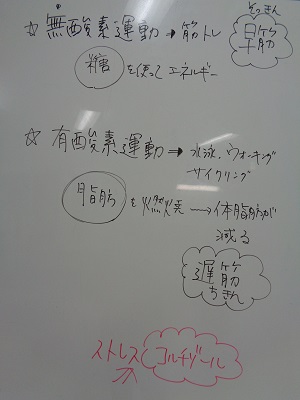 ☆無酸素運動→筋トレ
そっきん
早筋
糖を使ってエネルギー
☆有酸素運動→水泳、ウォーキング
サイクリング
脂肪を燃焼→体脂肪が
減る
遅筋
ちきん
ストレス コルチゾール